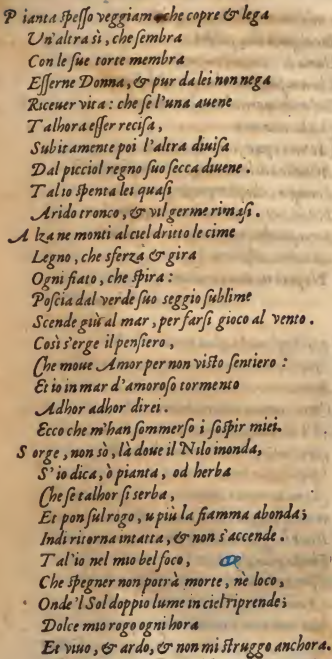 P ianta ſpeſſo veggiam, che copre & lega
Vn'altra sì, che ſembra
Con le ſue torte membra
Eſſerne Donna, & pur da lei non nega
Riceuer vita : che ſe l'una auene
T alhora eſſer reciſa,
Subitamente poi l'altra diuiſa
Dal picciol regno ſuo ſecca diuene.
T al io ſpenta lei quaſi
Arido tronco, & vil germe rimaſi.
A lza ne monti al ciel dritto le cime
Legno, che sferza & gira
Ogni fiato, che ſpira :
Poſcia dal verde ſuo ſeggio ſublime
Scende giù al mar, per farſi gioco al vento.
Così s'erge il penſiero,
Che moue Amor per non viſto ſentiero :
Et io in mar d'amoroſo tormento
Adhor adhor direi.
Ecco che m'han ſommerſo i ſoſpir miei.
S orge, non sò, là doue il Nilo inonda,
S'io dica, ò pianta, od herba
Che ſe talhor ſi serba,
Et pon ſul rogo, u più la fiamma abonda;
Indi ritorna intatta, & non s'accende.
T al'io nel mio bel foco,
Che ſpegner non potrà morte, ne loco,
Onde'l Sol doppio lume in ciel riprende;
Dolce mio rogo ogni hora
Et viuo, & ardo, & non mi ſtruggo anchora.